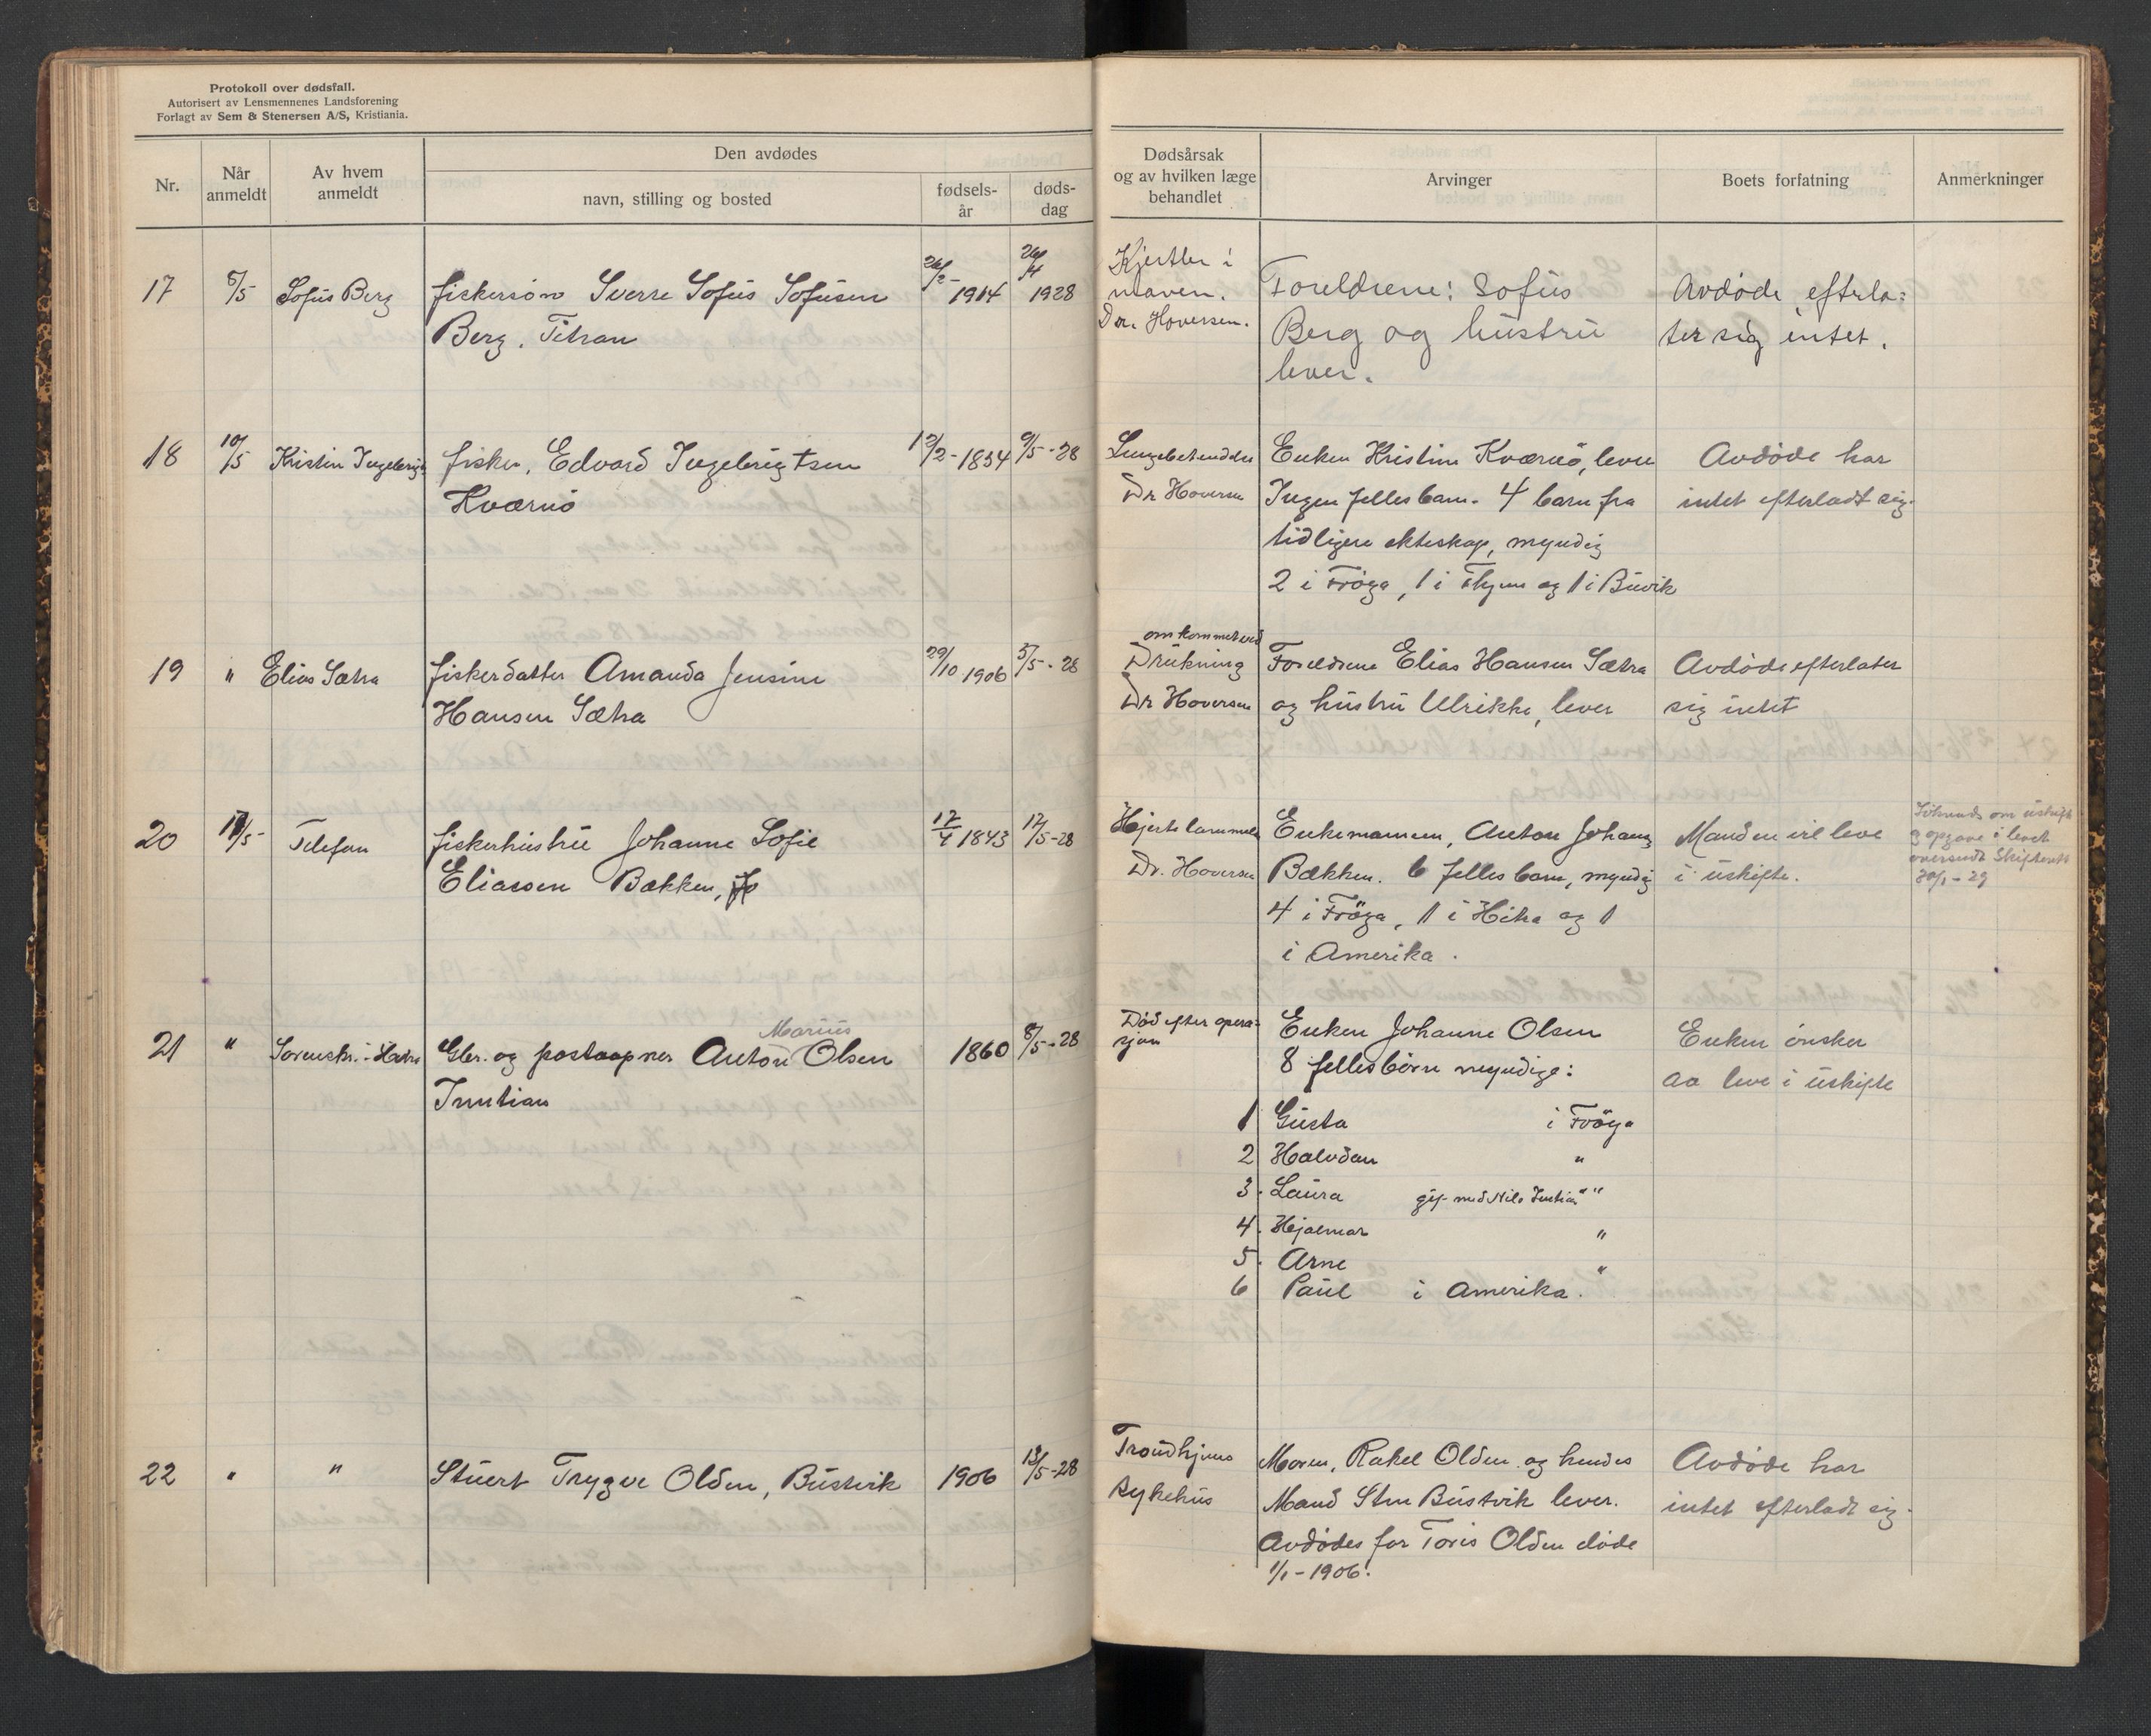 Protokoll over dødsfall.
Autorisert av Lensmennenes Landsforening
Forlagt av Sem & Stenersen A/S, Kristiania.
Nr.
Når anmeldt
Av hvem anmeldt
Den avdødes
navn, stilling og bosted
fødsels-år
døds-dag
Dødsårsak og av hvilken læge behandlet
Arvinger
Boets forfatning
Anmerkninger
17 5/5 Sofus Berg fiskersøn Sverre Sofus Sofusen 26/2- 1914 26/4 1928
Berg. Titran
Kjertler i
maven.
Dr. Hoversen.
Foreldrene: Sofus
Berg og hustru
lever.
Avdøde efterla=
ter sig intet.
18 10/5 Kristin Ingebrigt fisker, Edvard Ingebrigtsen 12/2-1854 9/5-28
Kværnö
Lungebetendelse
Dr Hoversen
Enken Kristine Kværnö, lever
Ingen felles barn. 4 barn fra
tidligere ekteskap, myndig
2 i Fröya, 1 i og 1 i Buvik
Avdøde har
intet efterladt sig.
19 " Elias Sætra fiskerdatter Amanda Jensine 29/10 1906 5/5-28
Hansen Sætra
omkommet ved
Drukning
Dr Hoversen
Foreldrene Elias Hansen Sætra
og hustru Ulrikke, lever
Avdøde efterlater
sig intet
20 Telefon fiskerhustru Johanne Sofie 17/4 1843 12/5-28
Eliassen Bækken,
Hjertelammelse
Dr. Hoversen
Enkemannen, Anton Johans
Bækken. 6 felles barn, myndig
4 i Fröya, 1 i Hitra og 1
i Amerika.
Manden vil leve
i uskifte.
om uskifte
og opgave i levert
oversendt Skifterett
30/1-29
Marius
21 " Sorenskr. i Hitra Gbr. og postaapner Anton Olsen 1860 8/5-28
Inntian
Död efter opera=
sjon
Enken Johanne Olsen
8 fellesbörn myndige:
1 Gusta i Fröya
2 Halvdan "
3. Laura gif- med Nils Inntian " "
4. Hjalmar "
5. Arne "
6 Paul i Amerika.
Enken önsker
aa leve i uskifte
22 " " Stuert Trygve Olden, Bustvik 1906 13/5-28
Trondhjems
sykehus
Moren, Rakel Olden og hendes
Mand Sten Bustvik lever.
Avdödes far Toris Olden döde
1/1-1906.
Avdøde har
intet efterladt sig.